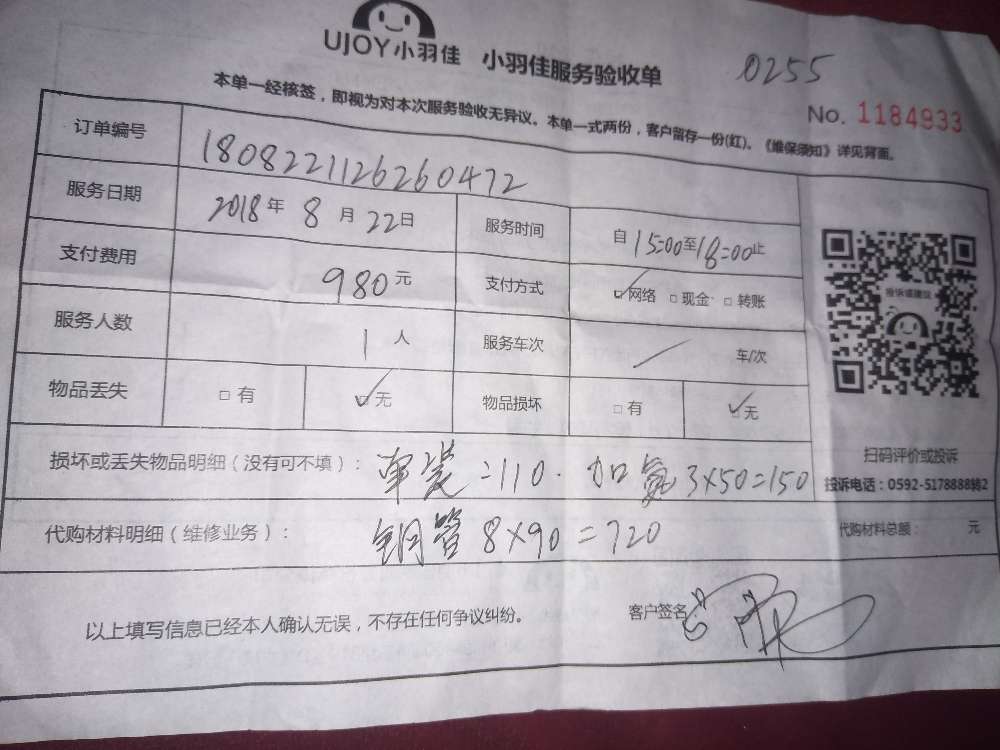 UJOY小羽佳 小羽佳服务验收单 0255
No. 1184933
本单一经核签，即视为对本次服务验收无异议。本单一式两份，客户留存一份(红)。《维保须知》详见背面。
订单编号 1808221126260472
服务日期 2018年8月22日 服务时间 自15:00至18:00止
支付费用 980元 支付方式 ☑网络 □现金 □转账
服务人数 1人 服务车次 / 车/次
物品丢失 □有 ☑无 物品损坏 □有 ☑无
投诉或建议
扫码评价或投诉
投诉电话：0592-5178888转2
损坏或丢失物品明细（没有可不填）： 单装=110. 加氟3×50=150
代购材料明细（维修业务）： 铜管8×90=720 代购材料总额： 元
以上填写信息已经本人确认无误，不存在任何争议纠纷。 客户签名